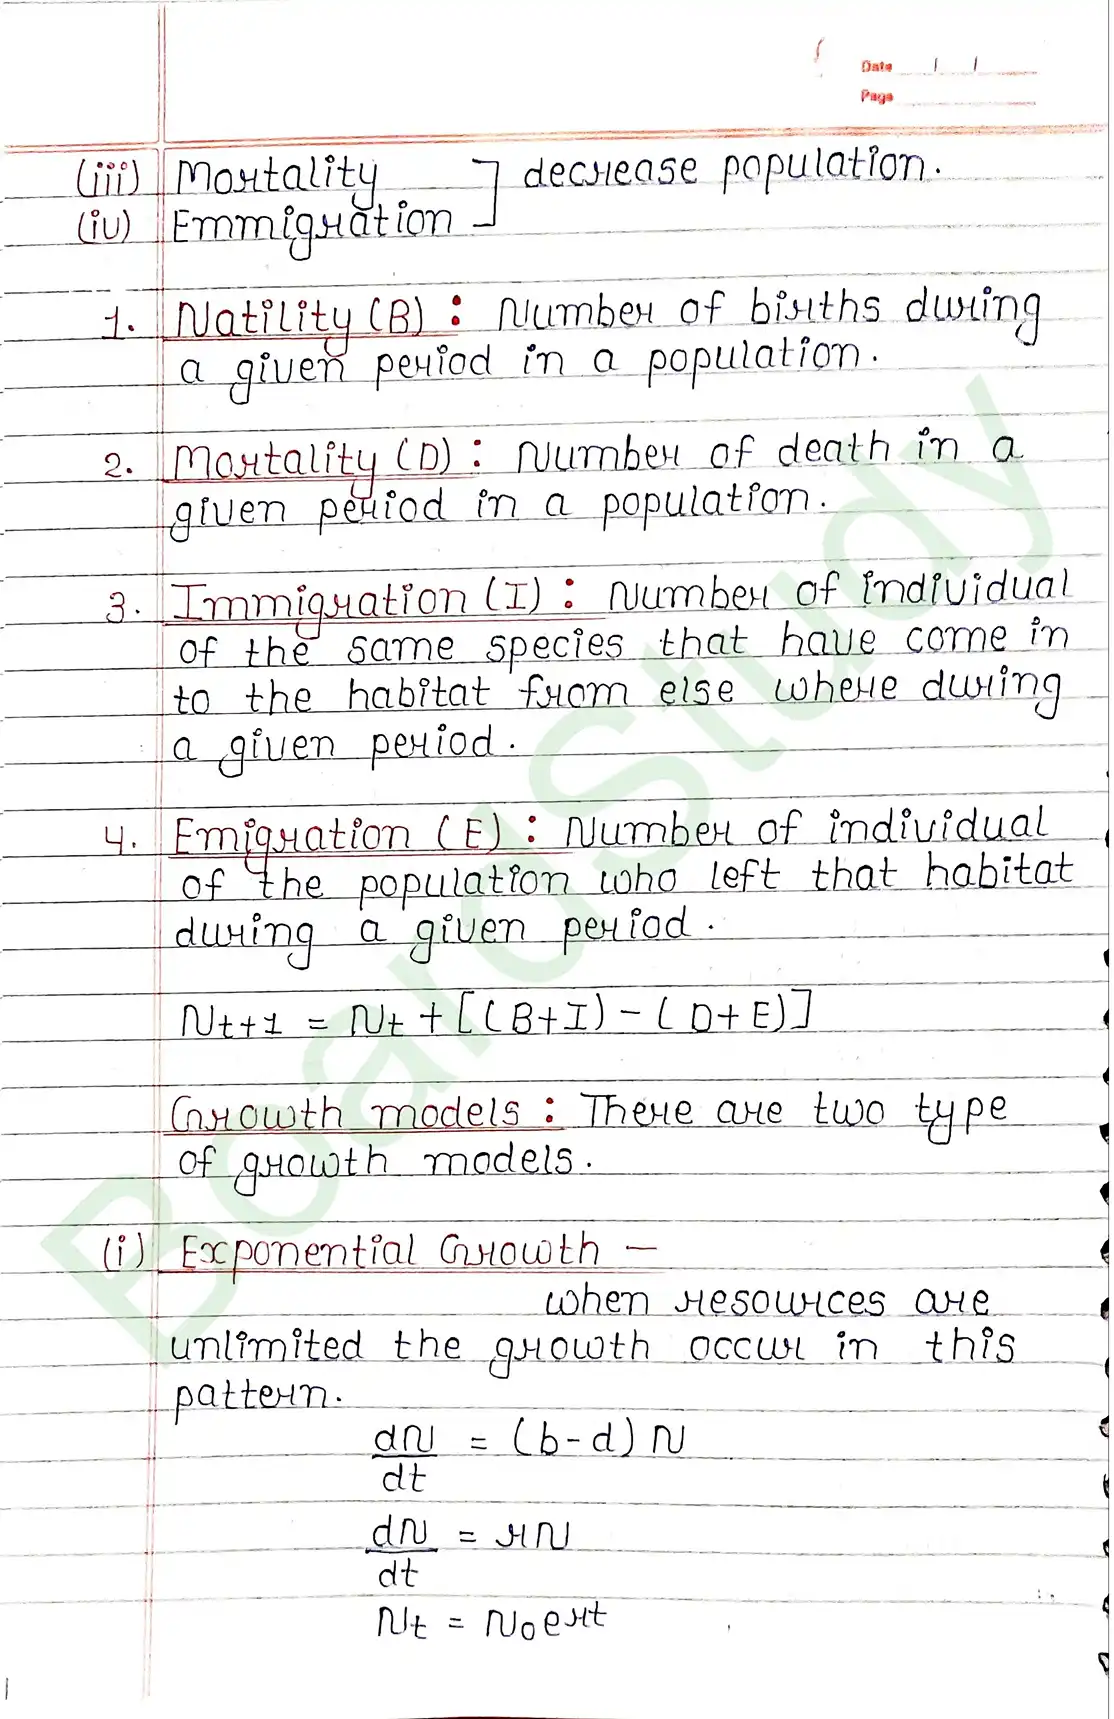 Date / /
Page
(iii) Mortality ] decrease population.
(iv) Emmigration
1. Natility (B) : Number of births during
a given period in a population.
2. Mortality (D) : Number of death in a
given period in a population.
3. Immigration (I) : Number of individual
of the same species that have come in
to the habitat from else where during
a given period.
4. Emigration (E) : Number of individual
of the population who left that habitat
during a given period.
Nt+1 = Nt + [(B+I) - (D+E)]
Growth models : There are two type
of growth models.
(i) Exponential Growth —
when resources are
unlimited the growth occur in this
pattern.
dN/dt = (b-d) N
dN/dt = rN
Nt = N₀eʳᵗ
BoardStudy